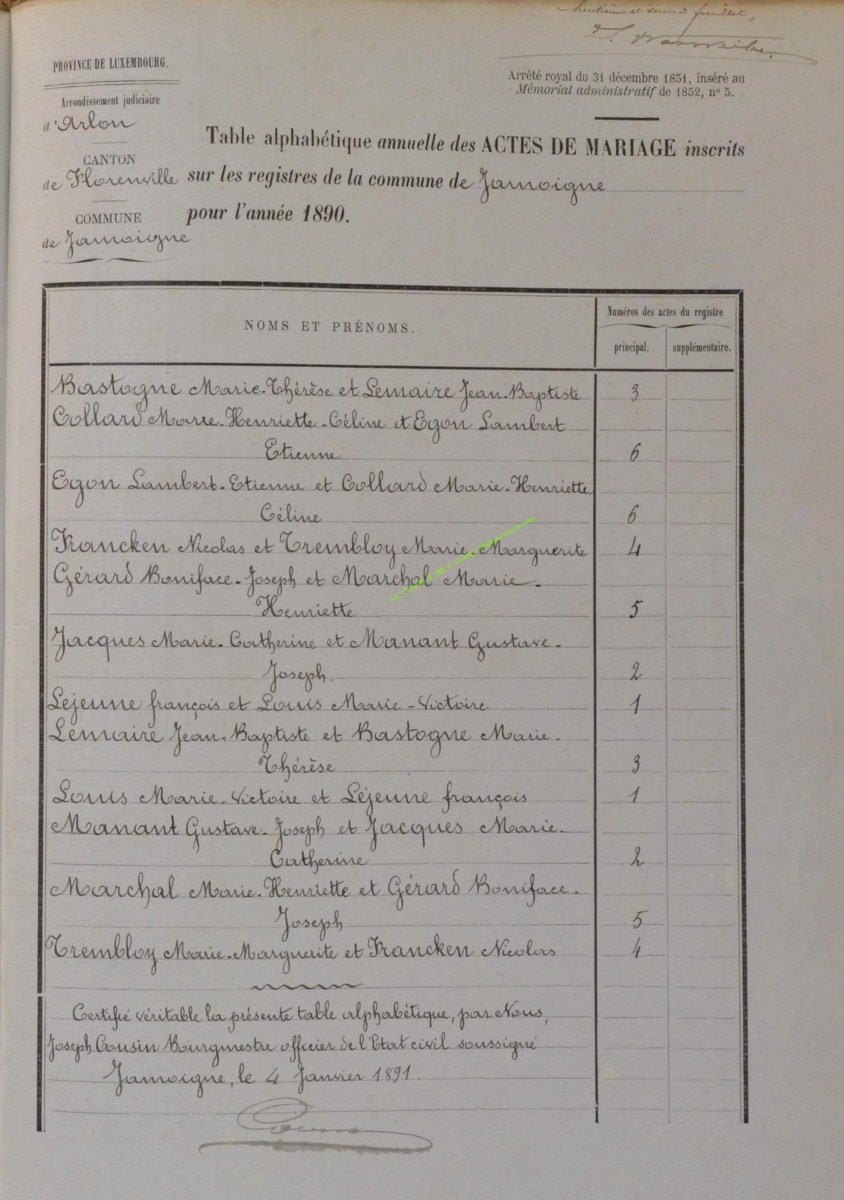 huitième et dernier feuillet,
PROVINCE DE LUXEMBOURG.
Arrondissement judiciaire
d'Arlon
CANTON
de Florenville
COMMUNE
de Jamoigne
Arrêté royal du 31 décembre 1851, inséré au
Mémorial administratif de 1852, n° 5.
Table alphabétique annuelle des ACTES DE MARIAGE inscrits
sur les registres de la commune de Jamoigne
pour l'année 1890.
NOMS ET PRÉNOMS.
Numéros des actes du registre
principal. supplémentaire.
Bastogne Marie-Thérèse et Lemaire Jean-Baptiste 3
Collard Marie-Henriette-Céline et Egon Lambert
Etienne 6
Egon Lambert-Etienne et Collard Marie-Henriette
Céline 6
Francken Nicolas et Trembloy Marie-Marguerite 4
Gérard Boniface-Joseph et Marchal Marie-
Henriette 5
Jacques Marie-Catherine et Manant Gustave-
Joseph. 2
Lejeune françois et Louis Marie-Victoire 1
Lemaire Jean-Baptiste et Bastogne Marie-
Thérèse 3
Louis Marie-Victoire et Lejeune françois 1
Manant Gustave-Joseph et Jacques Marie-
Catherine 2
Marchal Marie-Henriette et Gérard Boniface-
Joseph 5
Trembloy Marie-Marguerite et Francken Nicolas 4
Certifié véritable la présente table alphabétique, par Nous,
Joseph Cousin Bourgmestre officier de l'Etat civil soussigné
Jamoigne, le 4 Janvier 1891.